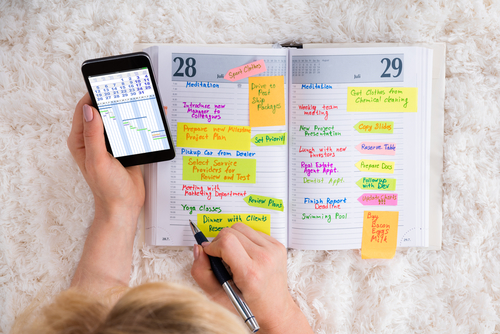 28
Juli
Sport Clothes
Meditation
Drive to
Post
Ship
Packages
Introduce new
Manager to
Colleagues
Prepare new Milestone
Project Plan
Set Priority
Pickup Car from Dealer
Select Service
Providers for
Review and Test
Meeting with
Marketing Department
Review Plans
Yoga Classes
Dinner with Clients
29
Juli
Meditation
Get Clothes from
Chemical cleaning
Weekly team
meeting
New Project
Presentation
Copy Slides
Lunch with new
investors
Reserve Table
Real Estate
Agent Appt.
Prepare Docs
Dentist Appt
Followup
with Dev
Finish Report
Deadline
Swimming Pool
Buy
Bacon
Eggs
Milk